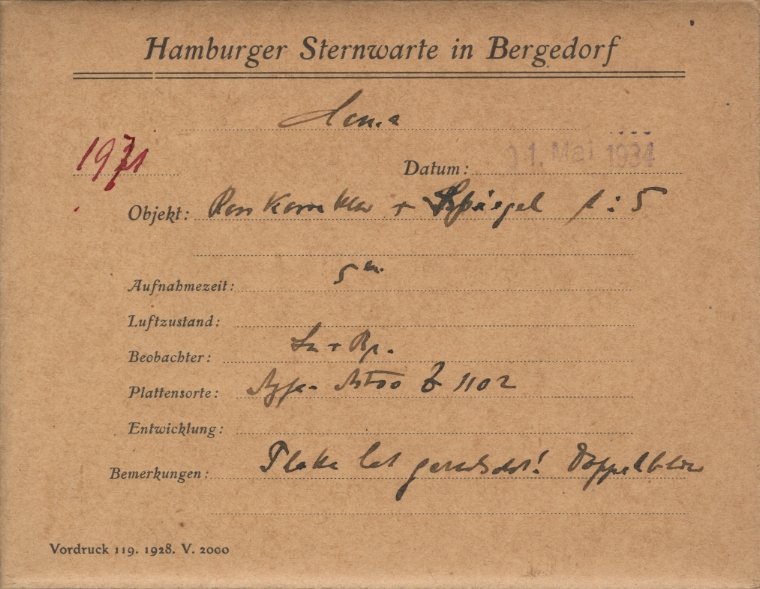 Hamburger Sternwarte in Bergedorf
1971
Datum: 1. Mai 1934
Objekt: + Spiegel 1:5
Aufnahmezeit: 5 m
Luftzustand:
Beobachter:
Plattensorte: Agfa- Astro Z 1102
Entwicklung:
Bemerkungen: Platte hat gerutscht!
Vordruck 119. 1928. V. 2000